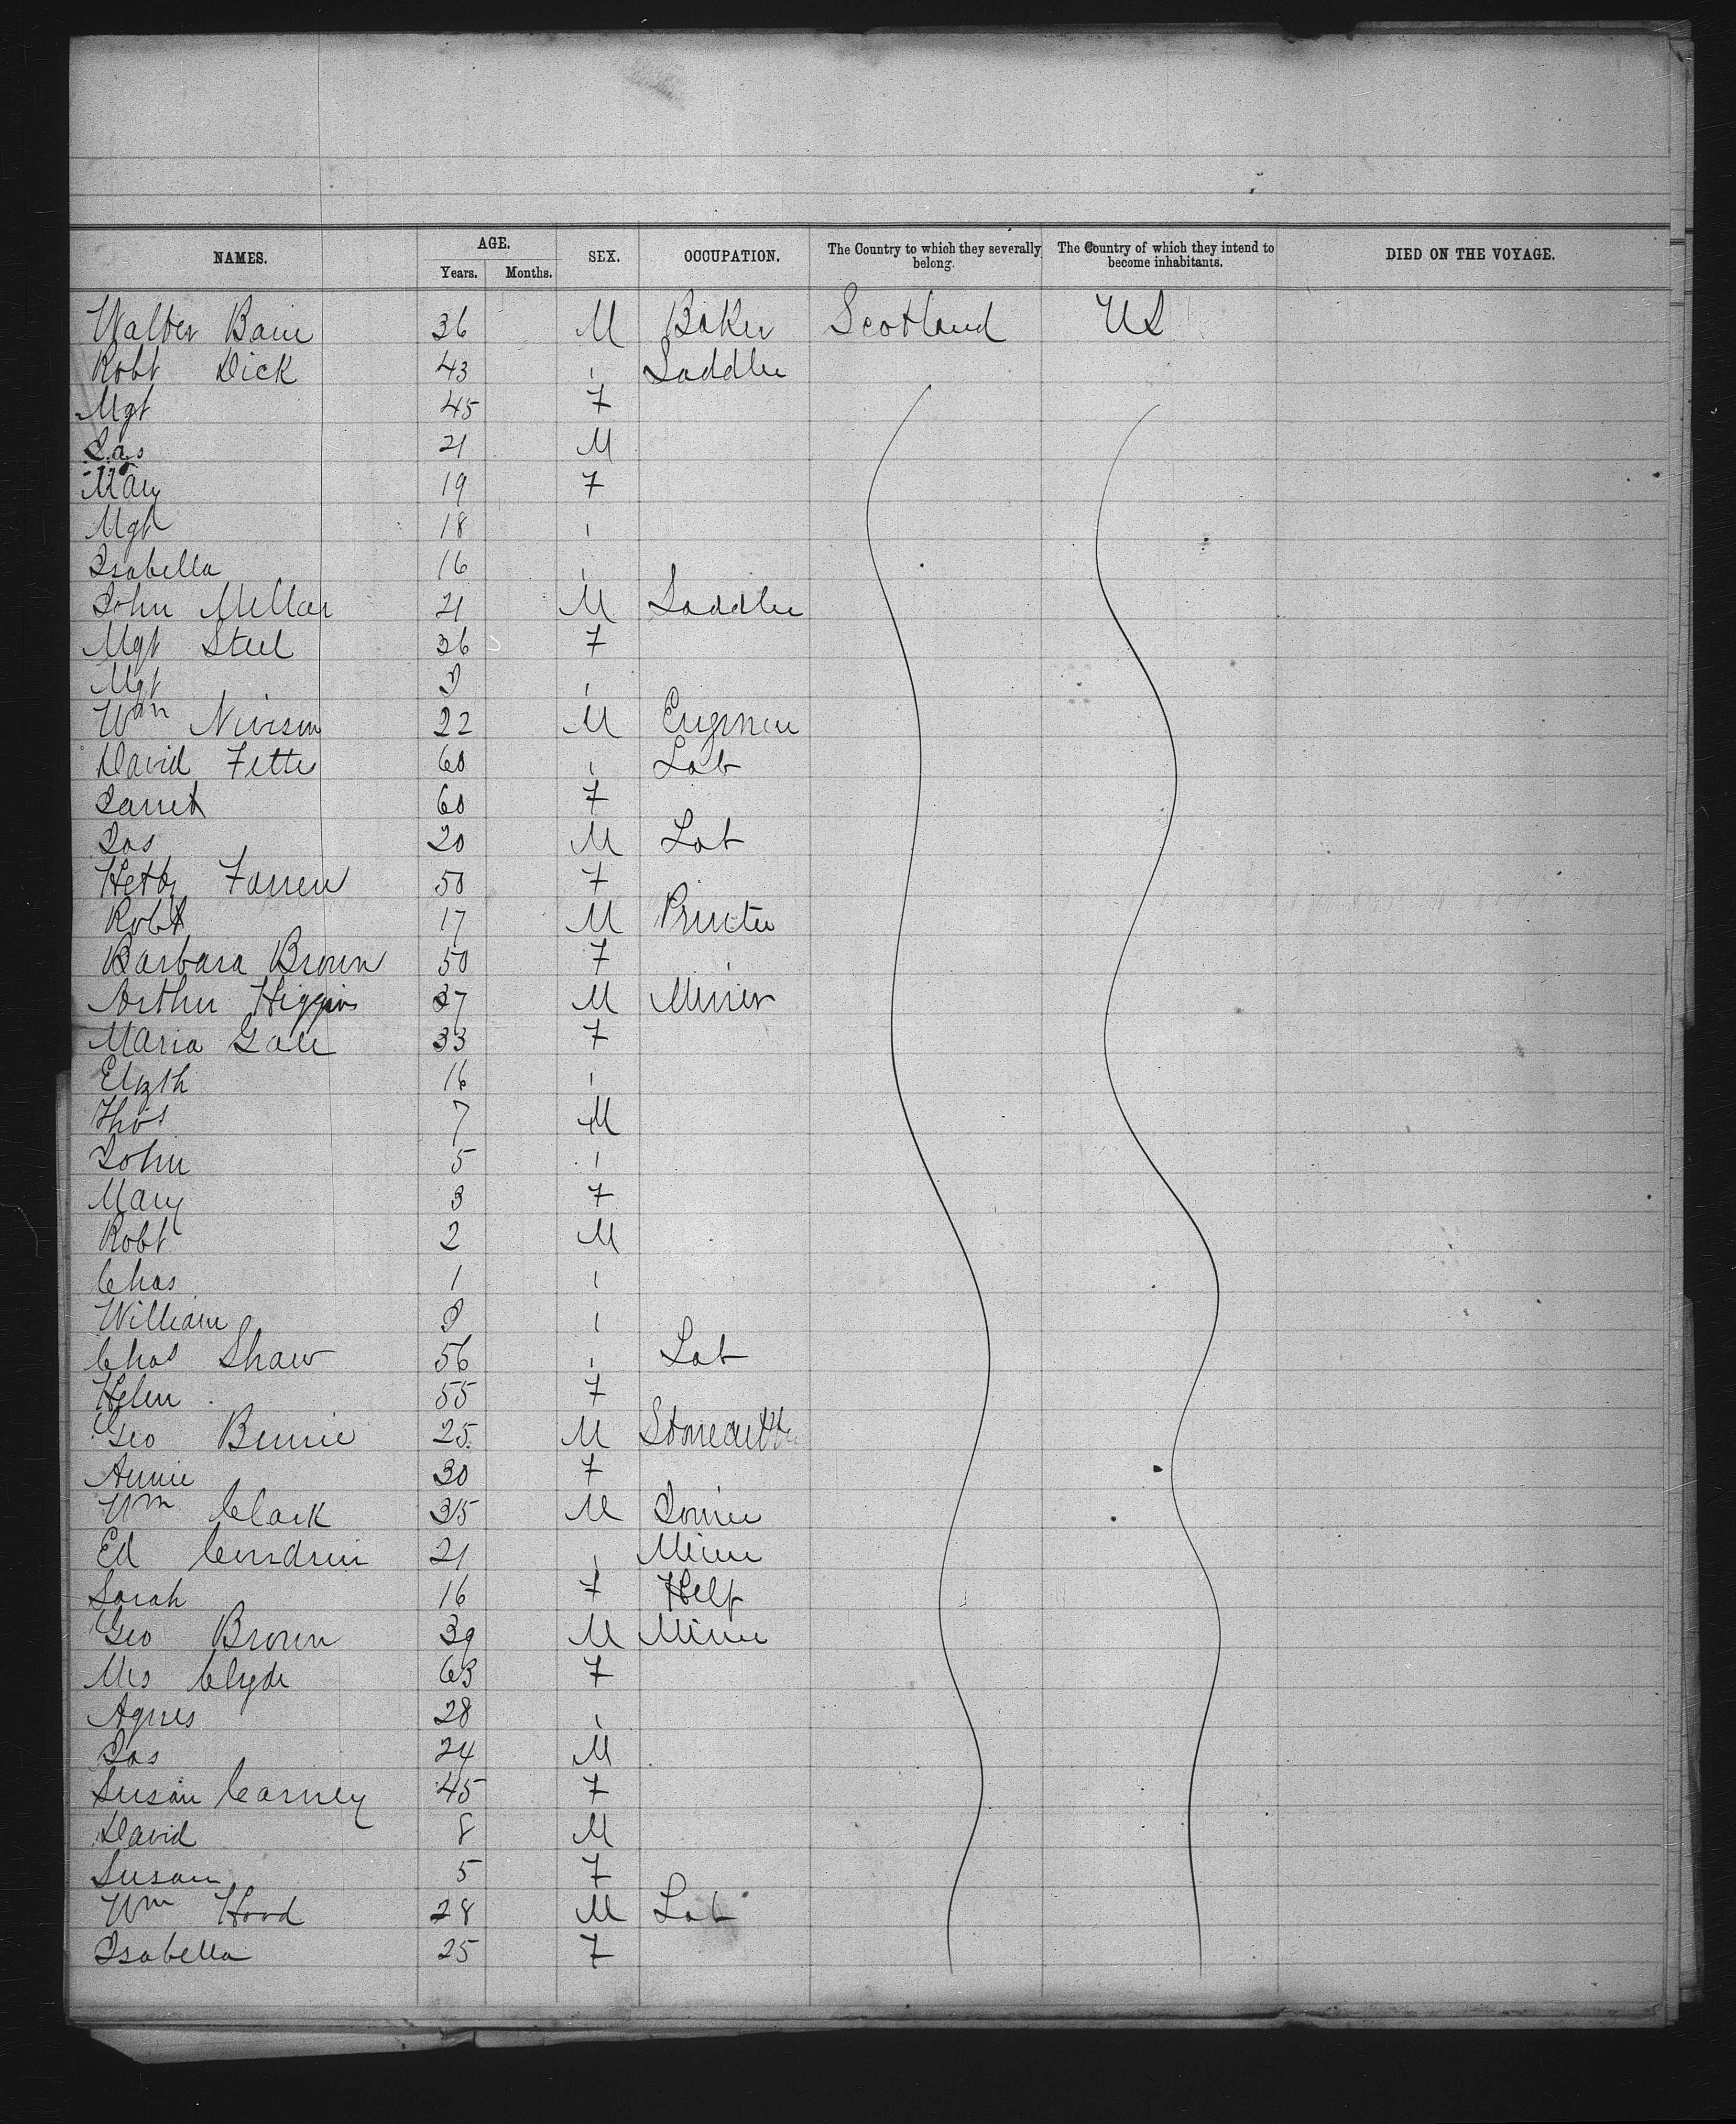 NAMES. AGE. SEX. OCCUPATION. The Country to which they severally belong. The Country of which they intend to become inhabitants. DIED ON THE VOYAGE.
Years. Months.
Walter Bain 36 M Baker Scotland US
Robt Dick 43 " Saddler
Mgt 45 F
Jas 21 M
Mary 19 F
Mgt 18 "
Isabella 16 "
John Mellar 21 M Saddler
Mgt Steel 36 F
Mgt 9 "
Wm Nivison 22 M Engineer
David Fette 60 " Lab
Janet 60 F
Jas 20 M Lab
Hetty Farren 50 F
Robt 17 M Printer
Barbara Brown 50 F
Arthur Higgins 37 M Miner
Maria Gale 33 F
Elizth 16 "
Thos 7 M
John 5 "
Mary 3 F
Robt 2 M
Chas 1 "
William "
Chas Shaw 56 " Lab
Helen 55 F
Geo Binnie 25 M Stonecutter
Annie 30 F
Wm Clark 35 M Joiner
Ed 21 " Miner
Sarah 16 F Help
Geo Brown 39 M Miner
Mrs Clyde 63 F
Agnes 28 "
Jas 24 M
Susan Carney 45 F
David 8 M
Susan 5 F
Wm Hood 28 M Lab
Isabella 25 F